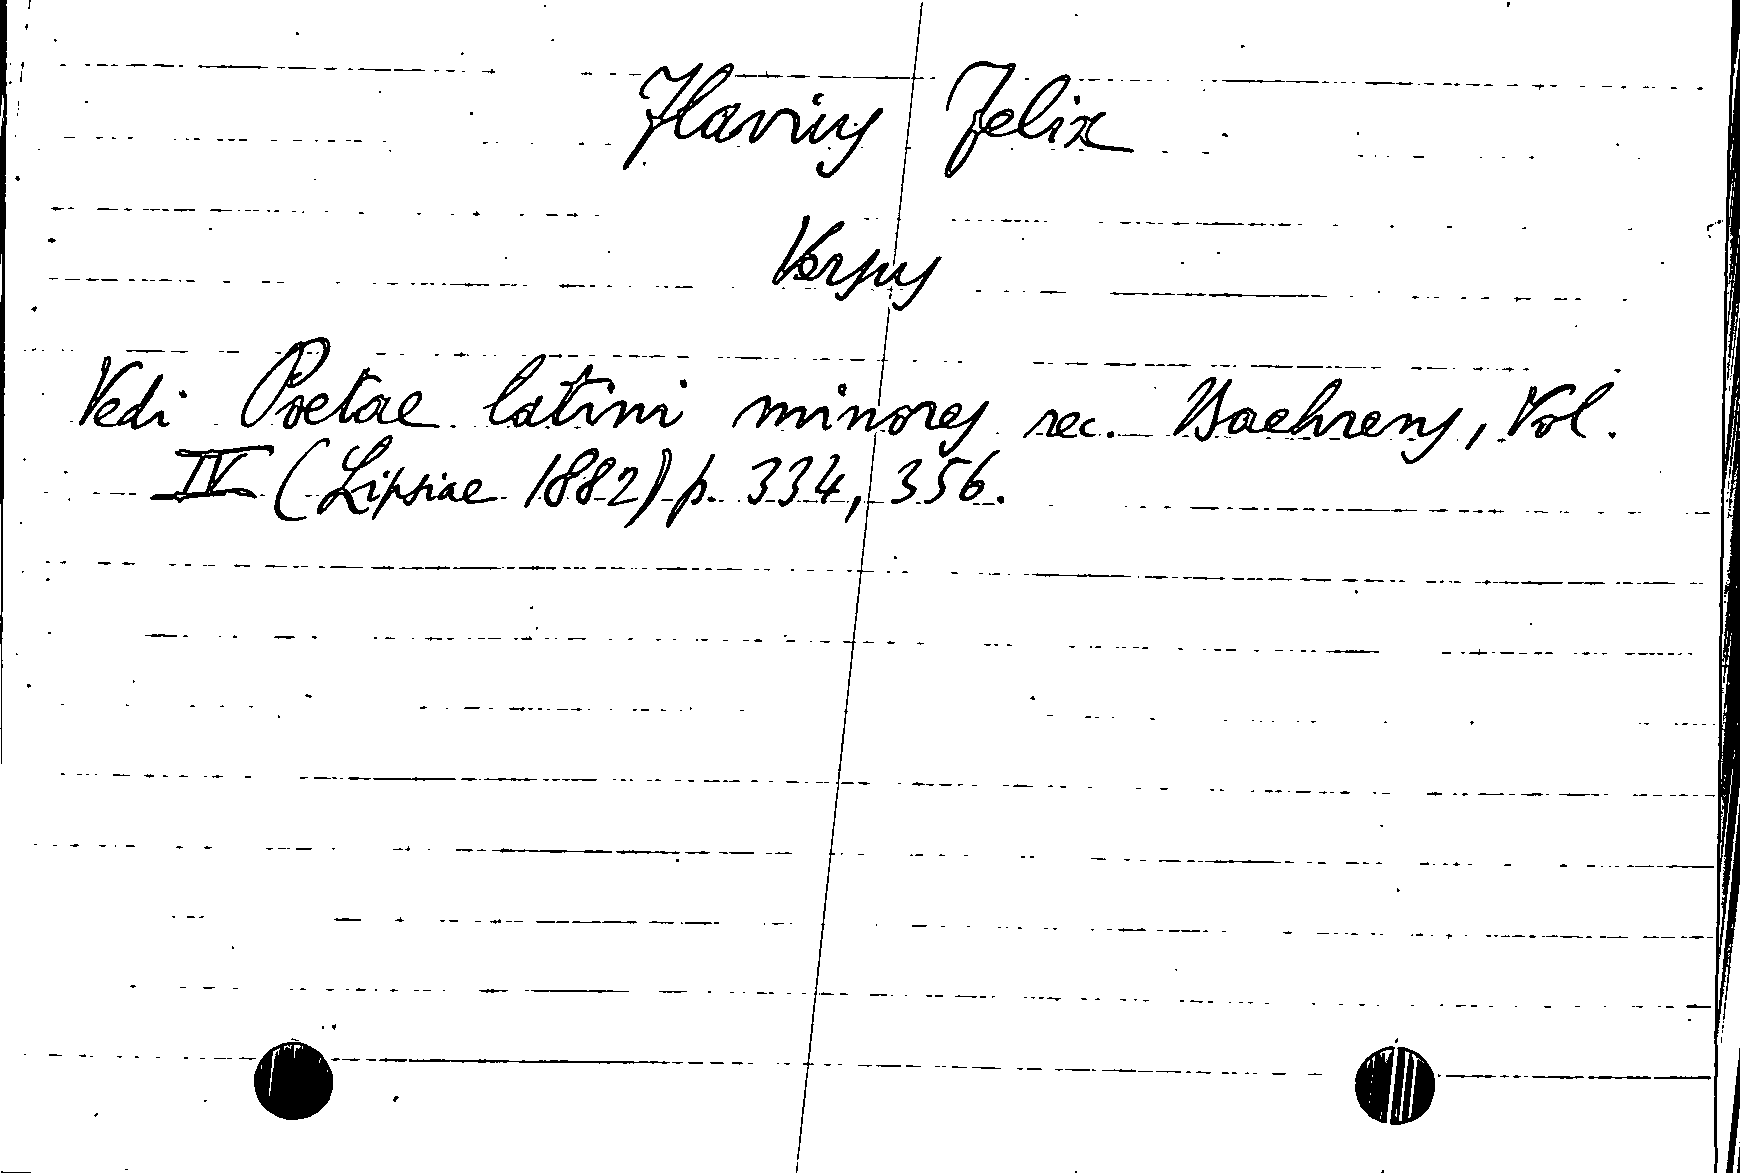 Flavius Felix
Versus
Vedi Poetae latini minores rec. Baehrens, Vol.
IV (Lipsiae 1882) p. 334, 356.